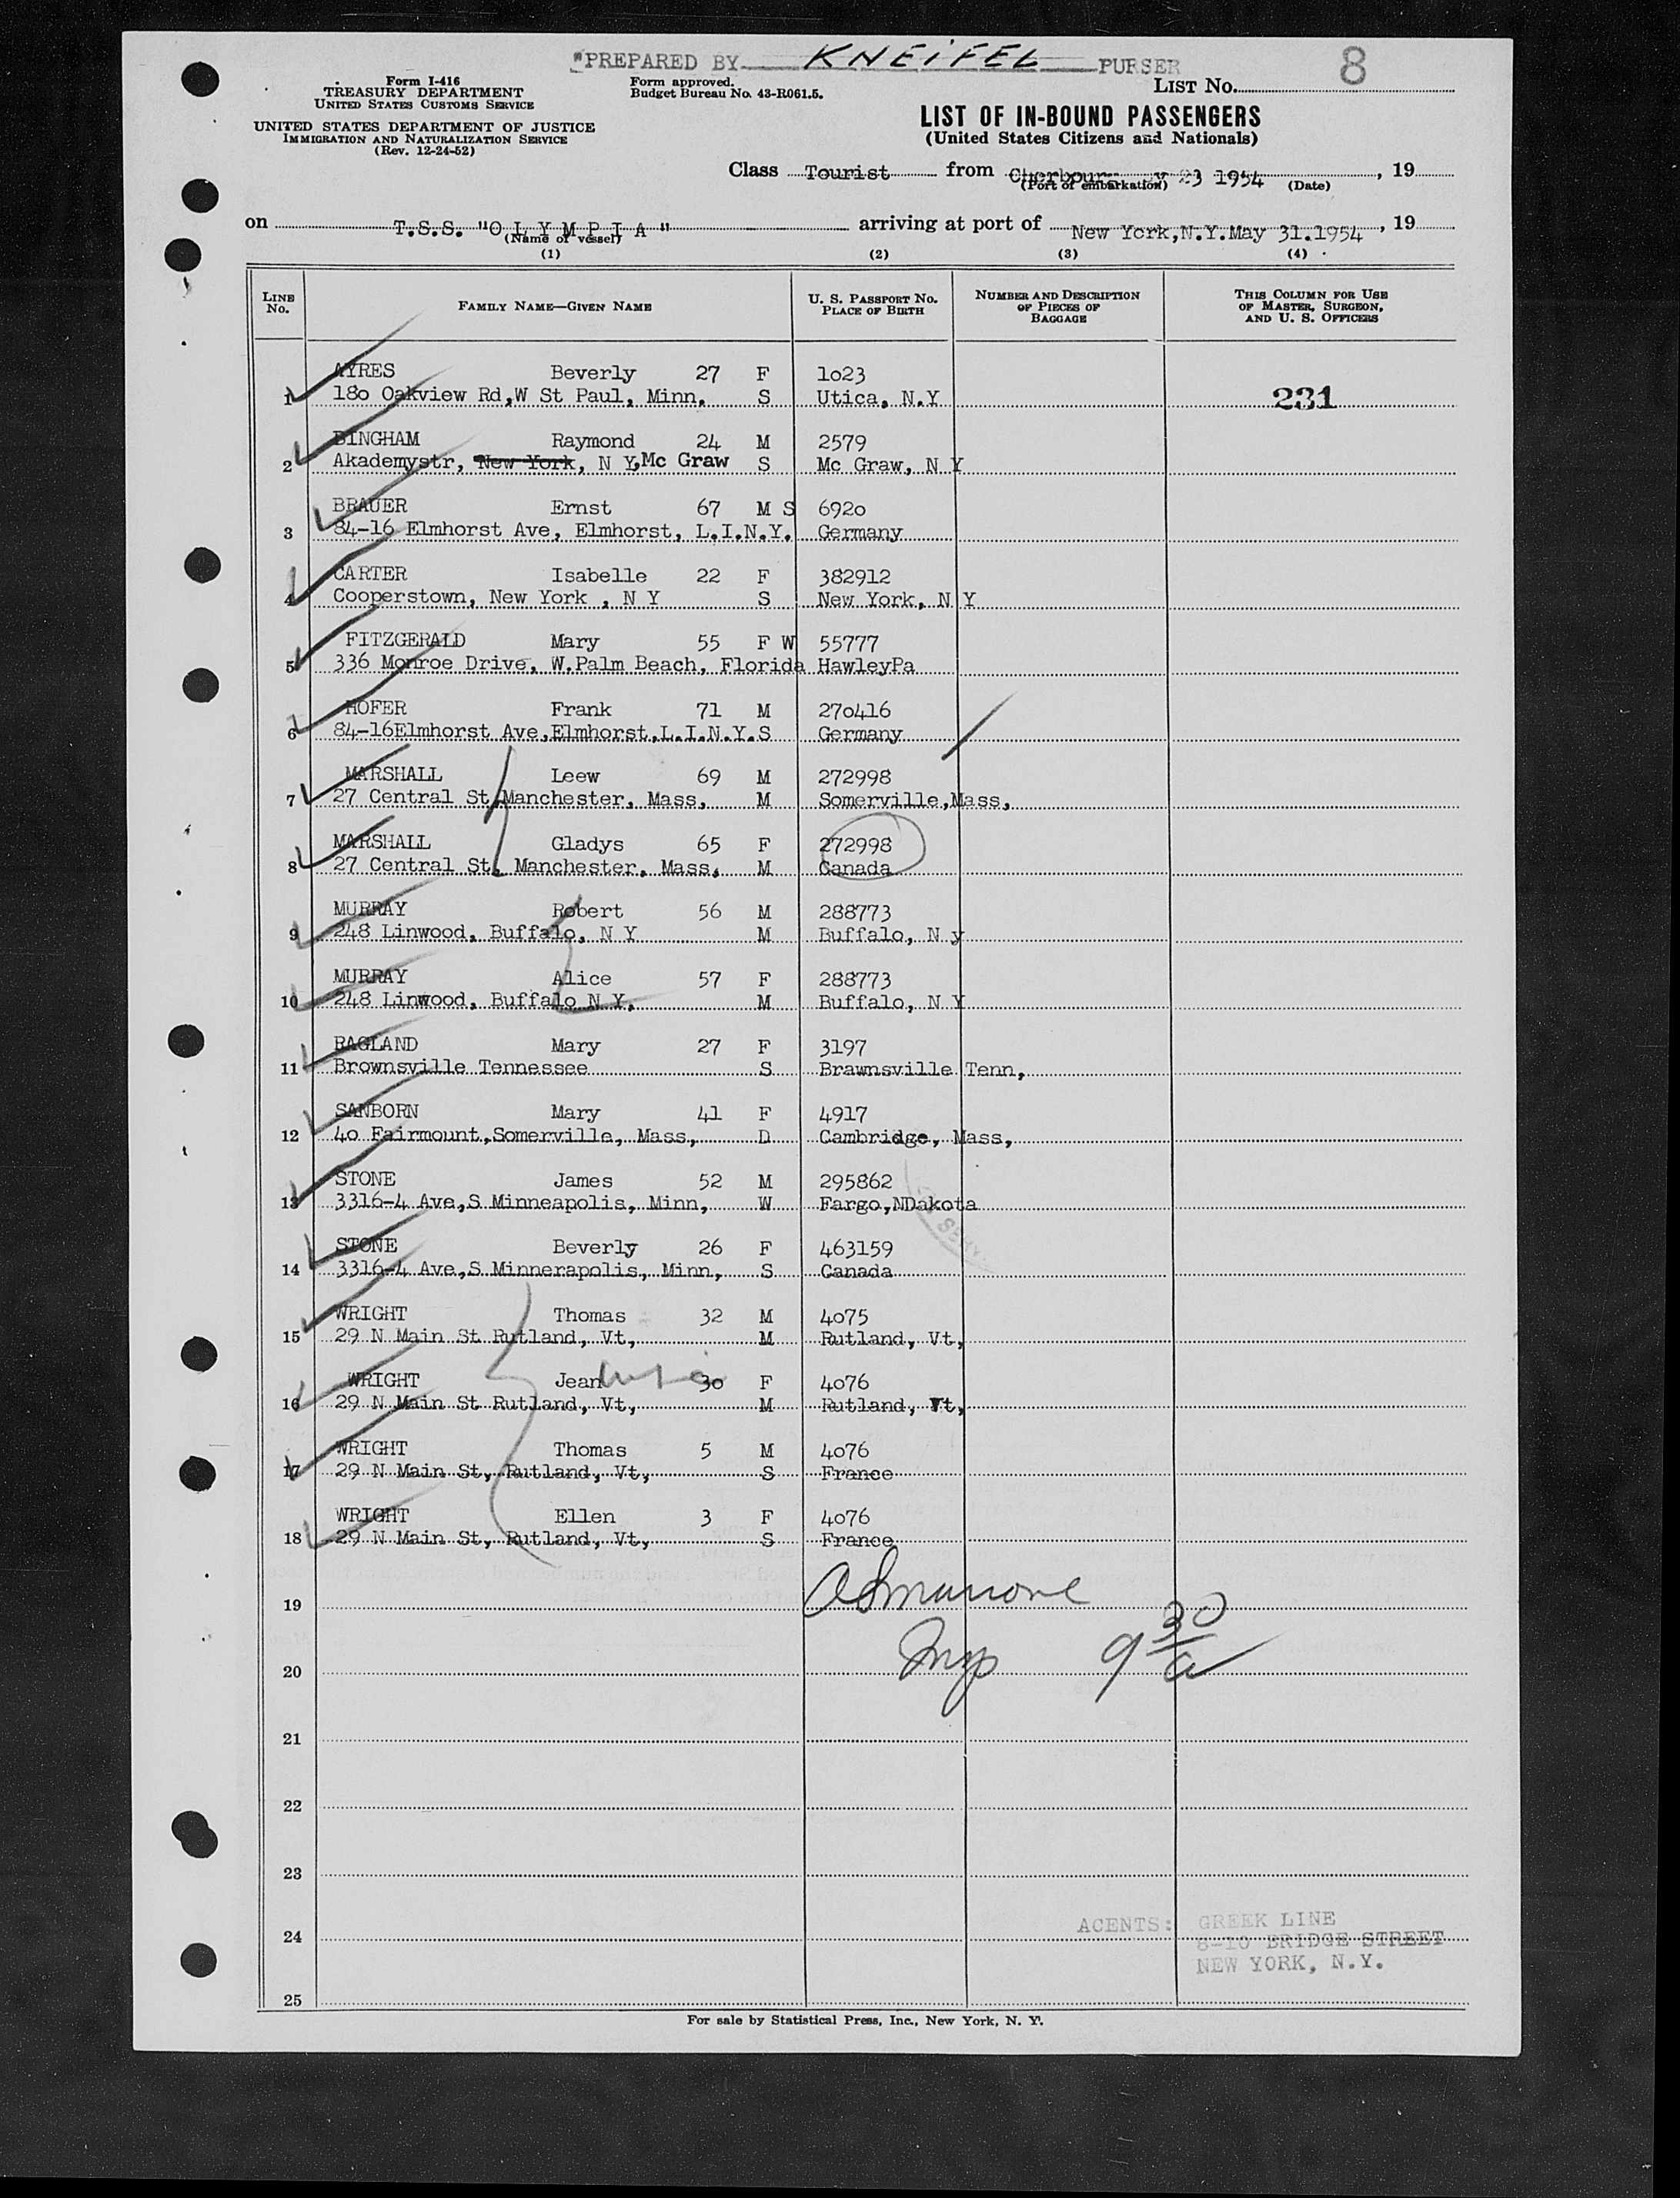 "PREPARED BY KNEIFEL PURSER
8
Form I-416
TREASURY DEPARTMENT
UNITED STATES CUSTOMS SERVICE
Form approved.
Budget Bureau No. 43-R061.5.
LIST No.
UNITED STATES DEPARTMENT OF JUSTICE
IMMIGRATION AND NATURALIZATION SERVICE
(Rev. 12-24-52)
LIST OF IN-BOUND PASSENGERS
(United States Citizens and Nationals)
Class Tourist from Cherbourg 23 1954, 19
(Port of embarkation) (Date)
on T.S.S. "O L Y M P I A" arriving at port of New York,N.Y.May 31.1954, 19
(Name of vessel)
(1) (2) (3) (4)
LINE No. FAMILY NAME—GIVEN NAME U. S. PASSPORT No. PLACE OF BIRTH NUMBER AND DESCRIPTION OF PIECES OF BAGGAGE THIS COLUMN FOR USE OF MASTER, SURGEON, AND U. S. OFFICERS
AYRES Beverly 27 F 1o23
1 18o Oakview Rd,W St Paul, Minn. S Utica, N.Y 231
BINGHAM Raymond 24 M 2579
2 Akademystr, New York, N Y,Mc Graw S Mc Graw, N Y
BRAUER Ernst 67 M S 692o
3 84-16 Elmhorst Ave, Elmhorst, L.I.N.Y. Germany
CARTER Isabelle 22 F 382912
4 Cooperstown, New York , N Y S New York, N Y
FITZGERALD Mary 55 F W 55777
5 336 Monroe Drive, W.Palm Beach, Florida HawleyPa
HOFER Frank 71 M 27o416
6 84-16Elmhorst Ave,Elmhorst,L.I.N.Y.S Germany
MARSHALL Leew 69 M 272998
7 27 Central St,Manchester, Mass, M Somerville,Mass,
MARSHALL Gladys 65 F 272998
8 27 Central St, Manchester, Mass, M Canada
MURRAY Robert 56 M 288773
9 248 Linwood, Buffalo, N Y M Buffalo, N y
MURRAY Alice 57 F 288773
10 248 Linwood, Buffalo N Y, M Buffalo, N Y
RAGLAND Mary 27 F 3197
11 Brownsville Tennessee S Brawnsville Tenn,
SANBORN Mary 41 F 4917
12 4o Fairmount,Somerville, Mass, D Cambridge, Mass,
STONE James 52 M 295862
13 3316-4 Ave,S Minneapolis, Minn, W Fargo,NDakota
STONE Beverly 26 F 463159
14 3316-4 Ave,S Minnerapolis, Minn, S Canada
WRIGHT Thomas 32 M 4o75
15 29 N Main St Rutland, Vt, M Rutland, Vt,
WRIGHT Jean 3o F 4o76
16 29 N Main St Rutland, Vt, M Rutland, Vt,
WRIGHT Thomas 5 M 4o76
17 29 N Main St, Rutland, Vt, S France
WRIGHT Ellen 3 F 4o76
18 29 N Main St, Rutland, Vt, S France
19
20 9 30/a
21
22
23
ACENTS: GREEK LINE
24 8-10 BRIDGE STREET
NEW YORK, N.Y.
25
For sale by Statistical Press, Inc., New York, N. Y.